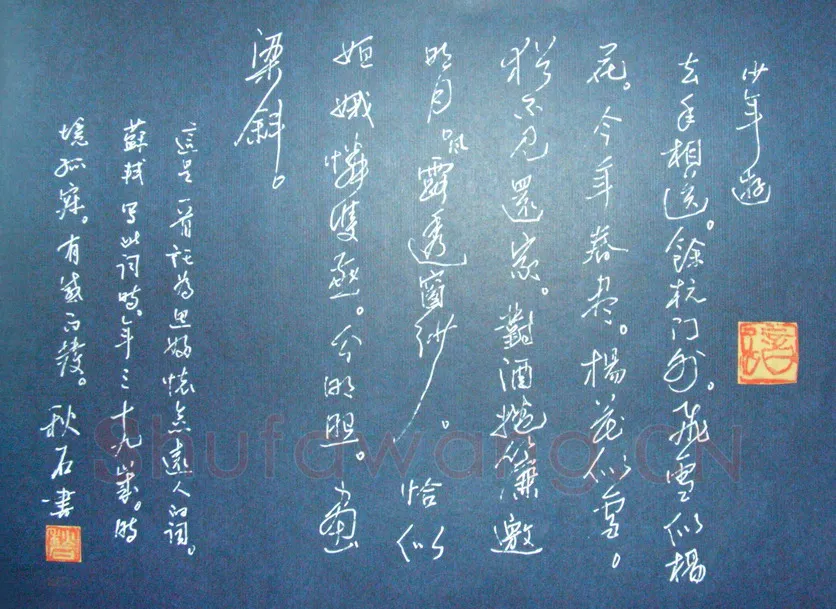 少年遊
去年相送。餘杭门外。飛雪似楊
花。今年春尽。楊花似雪。
猶不見還家。對酒捲簾邀
明月。風露透窗纱。恰似
姮娥憐雙燕。分明照。畫
梁斜。
這是一首託為思婦懷念遠人的词。
蘇軾写此词時。年三十九歲。時
境孤寂。有感而發。
秋石書
Shufawang.CN